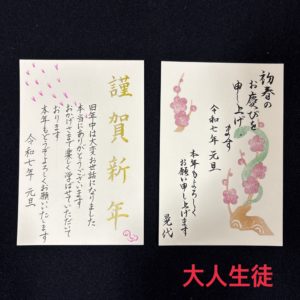 謹賀新年
旧年中は大変お世話になりました
本当にありがとうございます
おかげさまで楽しく学ばせていただいて
おります
本年もどうぞよろしくお願いいたします
令和七年 元旦
初春の
お慶びを
申し上げ
ます
令和七年 元旦
本年もよろしく
お願い申し上げます
晃代
大人生徒